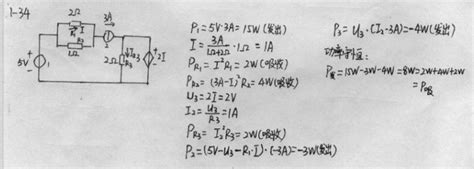 1-34
2Ω
R₁ I
R₂
1Ω
3A
2
5V
1
2Ω
I₂
R₃
3
2I
P₁ = 5V·3A = 15W (发出)
I = 3A/(1Ω+2Ω) · 1Ω = 1A
P_R₁ = I²R₁ = 2W (吸收)
P_R₂ = (3A-I)²R₂ = 4W (吸收)
U₃ = 2I = 2V
I₂ = U₃/R₃ = 1A
P_R₃ = I₂²R₃ = 2W (吸收)
P₂ = (5V-U₃-R₁·I)·(-3A) = -3W (发出)
P₃ = U₃·(I₂-3A) = -4W (发出)
功率守恒:
P发 = 15W-3W-4W = 8W = 2W+4W+2W
= P吸